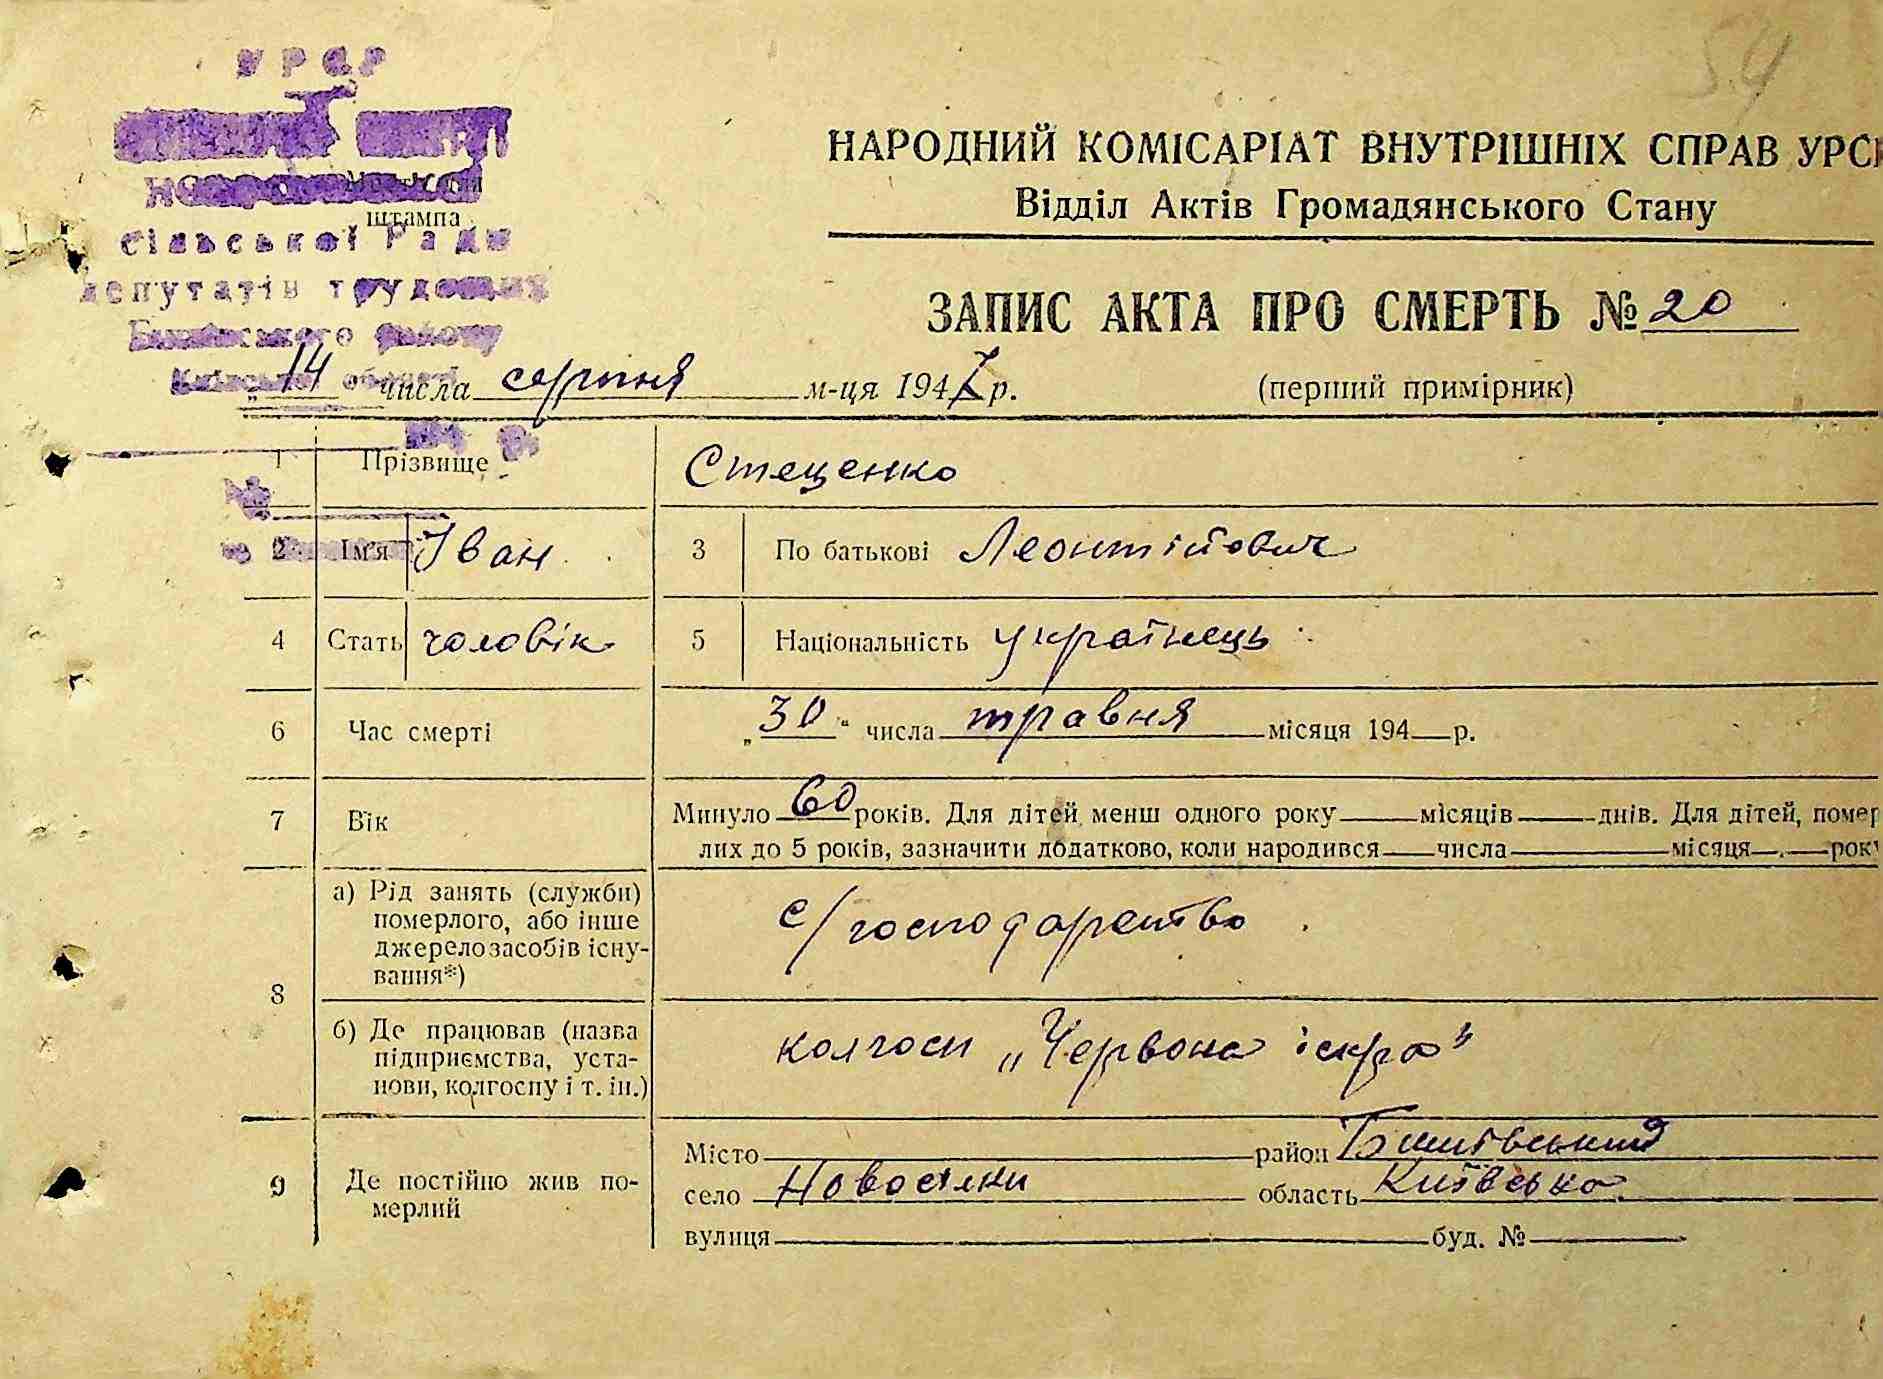 54
УРСР
штампа
Сільської Ради
депутатів трудящих
району
НАРОДНИЙ КОМІСАРІАТ ВНУТРІШНІХ СПРАВ УРСР
Відділ Актів Громадянського Стану
ЗАПИС АКТА ПРО СМЕРТЬ № 20
„14 числа серпня м-ця 1947 р.
(перший примірник)
1 Прізвище Стеценко
2 Ім'я Іван 3 По батькові Леонтійович
4 Стать чоловік 5 Національність українець
6 Час смерті „30“ числа травня місяця 194 р.
7 Вік Минуло 60 років. Для дітей менш одного року місяців днів. Для дітей, помер
лих до 5 років, зазначити додатково, коли народився числа місяця рок
8 а) Рід занять (служби)
померлого, або інше
джерело засобів існу-
вання*)
с/господарство
б) Де працював (назва
підприємства, уста-
нови, колгоспу і т. ін.)
колгосп „Червона іскра"
9 Де постійно жив по-
мерлий
Місто район
село Новосілки область Київська
вулиця буд. №